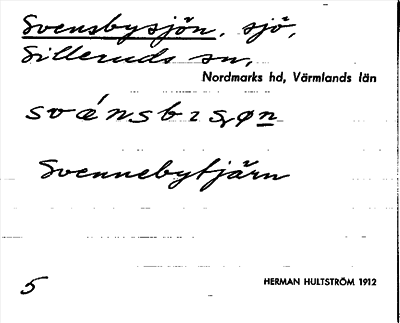 Svensbysjön, sjö,
Silleruds sn,
Nordmarks hd, Värmlands län
Svennebytjärn
5
HERMAN HULTSTRÖM 1912